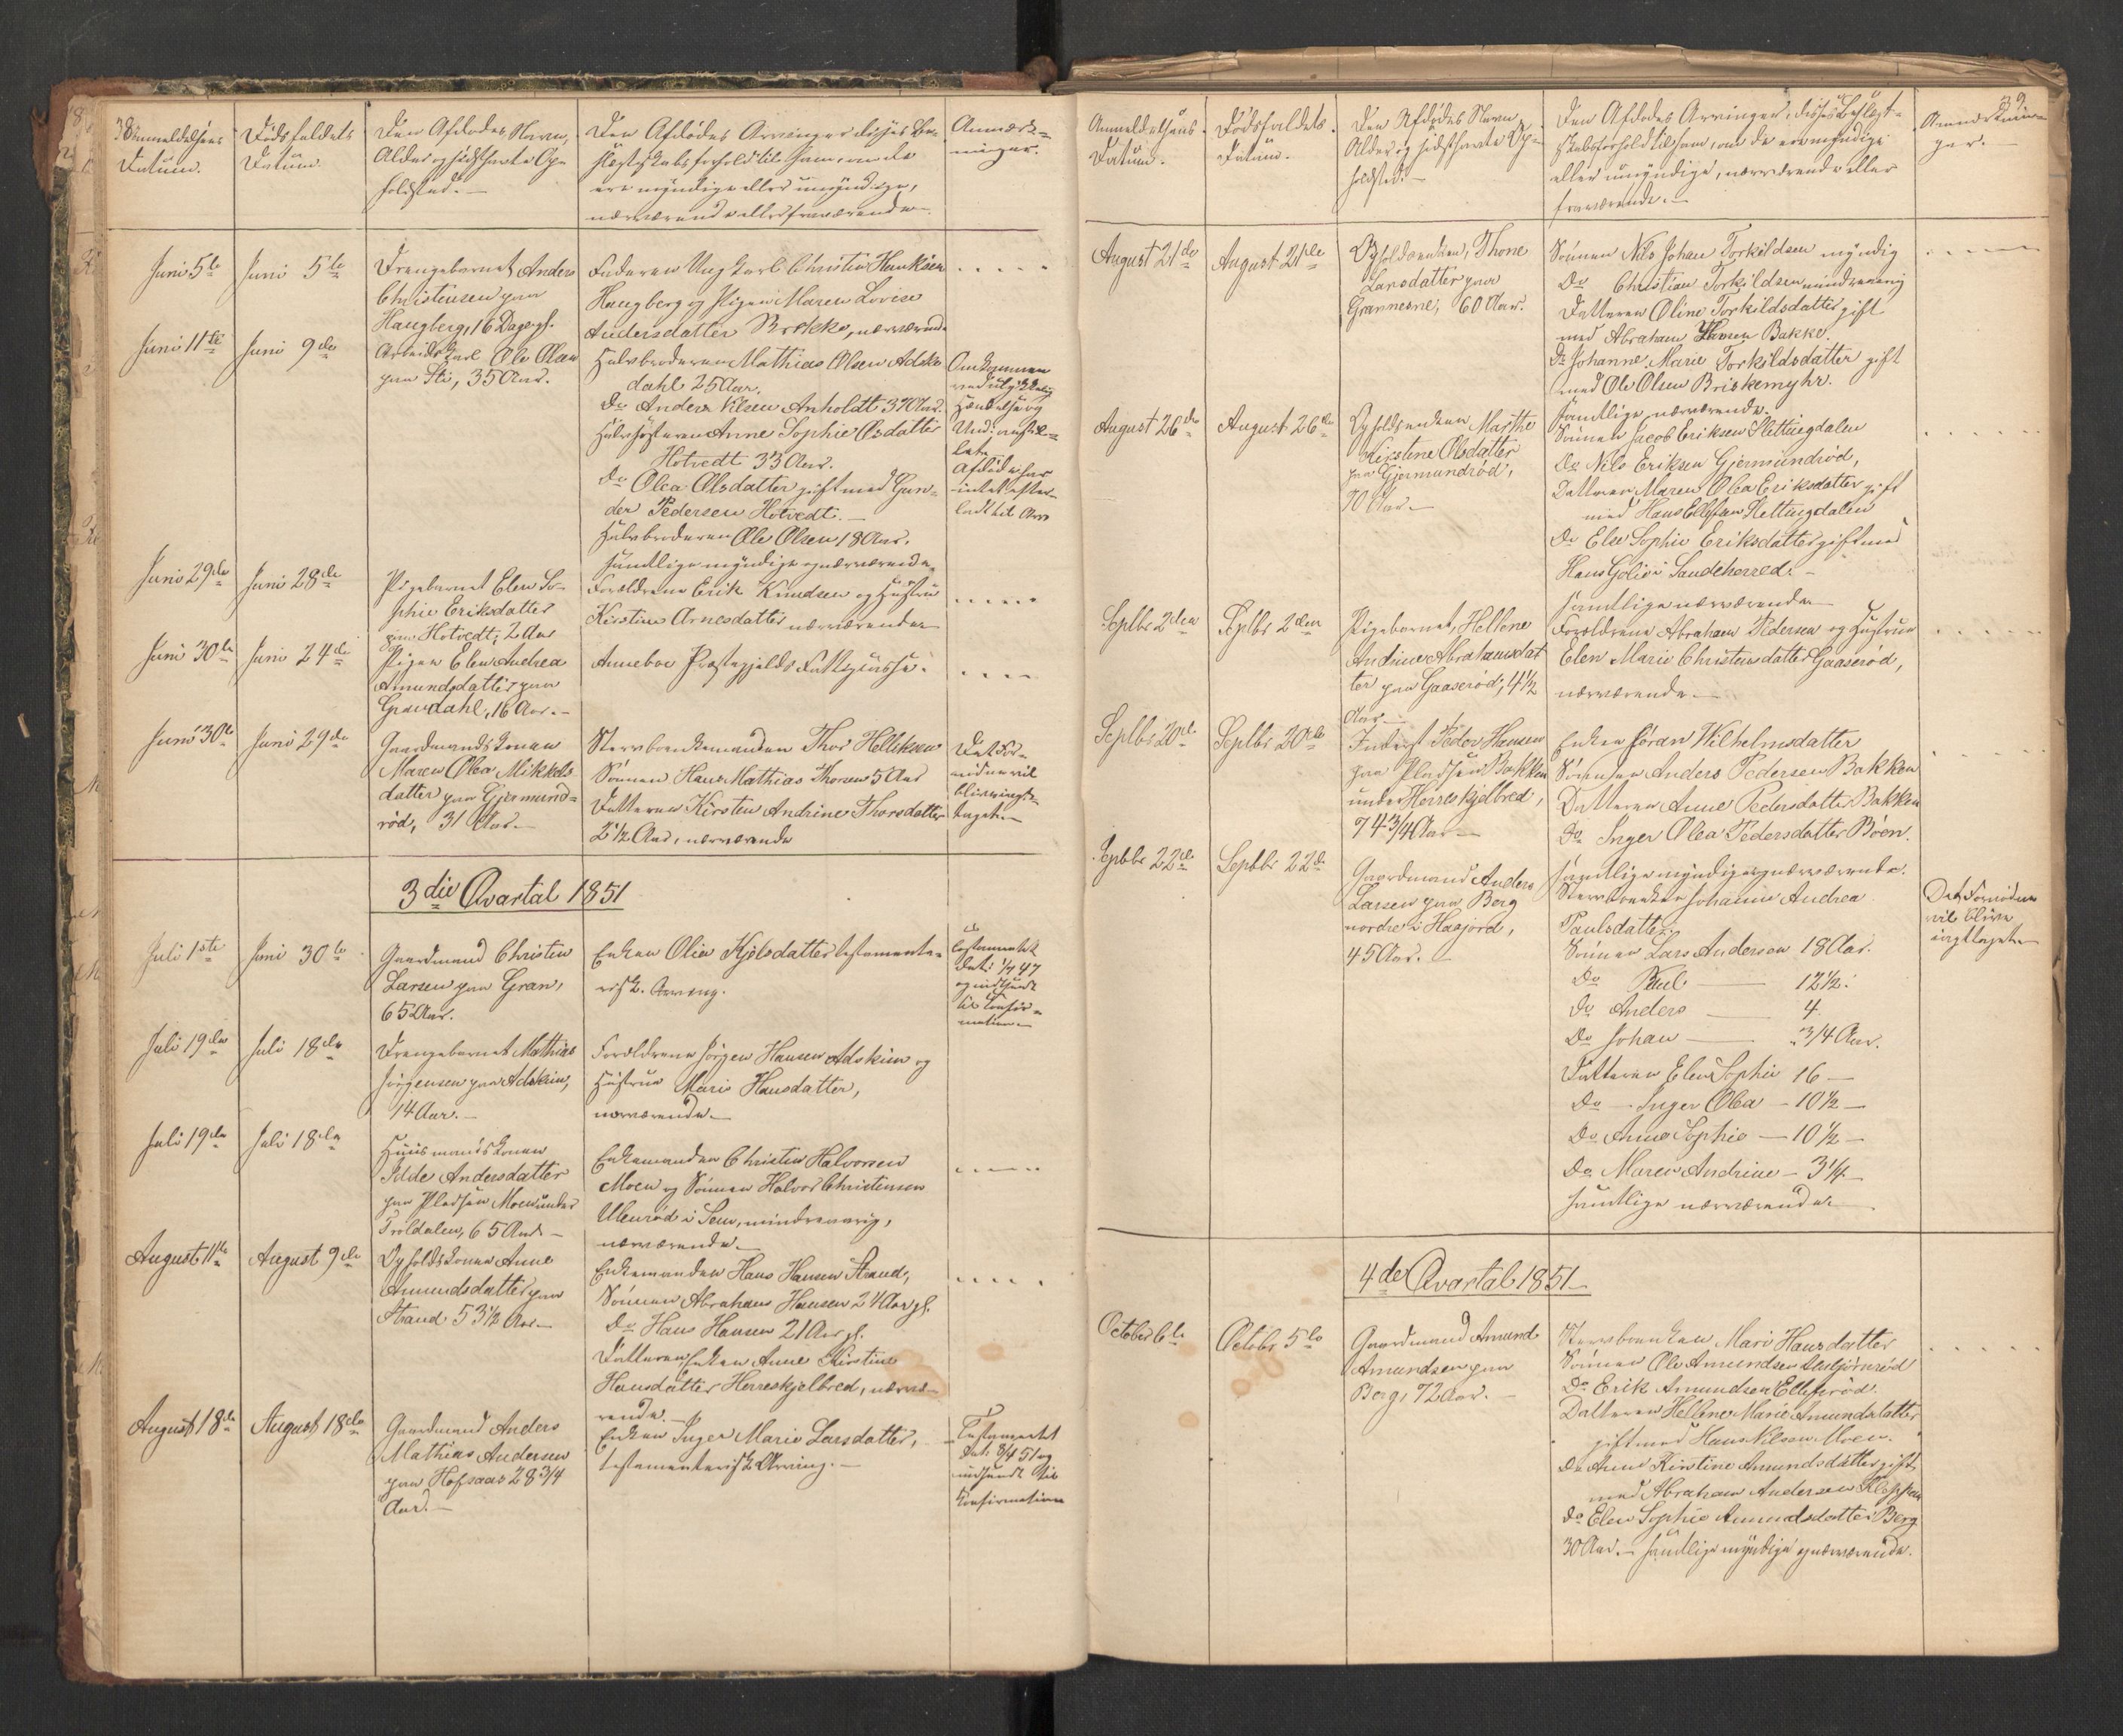 38
Anmeldelsens
Datum.
Dødsfaldets
Datum
Den Afdødes Navn,
Alder og sidsthavte Op-
holdsted.
Den Afdødes Arvinger disses Be-
slægtskabsforhold til ham, om de
ere myndige eller umyndige,
nærværende eller fraværende
Anmærk-
ninger.
Juni 5te
Juni 5te
Drengebarnet Anders
Christensen paa
Haugberg, 16 Dage gl.
Faderen Ungkarl Christen Hanksen
Haugberg og Pigen Maren Lovise
Andersdatter Brekke, nærværende
Juni 11te
Juni 9de
Arbeidskarl Ole Olsen
paa Sti, 35 Aar.
Halvbroderen Mathias Olsen Adals
dahl 25 Aar.
Do Anders Nilsen Anholdt 37 Aar.
Halvsøsteren Anne Sophie Olsdatter
Hotvedt 33 Aar.
Do Olea Olsdatter gift med Gun-
der Pedersen Hotvedt.
Halvbroderen Ole Olsen 18 Aar.
samtlige myndige og nærværende.
Omkommen
ved ulykkelig
Hændelse og
Afdøde har
intet efter-
ladt til Arv
Juni 29de
Juni 28de
Pigebarnet Elen So-
phie Eriksdatter
paa Hotvedt, 2 Aar
Forældrene Erik Knudsen og Hustru
Kirstine Arnesdatter nærværende
Juni 30te
Juni 24de
Pigen Elen Andrea
Amundsdatter paa
Grandahl, 16 Aar.
Annebo Præstegjelds Fattigkasse.
Juni 30te
Juni 29de
Gaardmandskonen
Maren Olea Mikkels
datter paa Gjermund-
rød, 31 Aar.
Stervboenkemanden Thor Helleksen
Sønnen Hans Mathias Thorsen 5 Aar
Datteren Kirsten Andrine Thorsdatter
2 1/2 Aar, nærværende
Det For-
nødne vil
blive iagt-
taget.
3die Qvartal 1851
Juli 1ste
Juni 30te
Gaardmand Christen
Larsen paa Gran,
65 Aar.
Enken Olia Kjølsdatter testamenta-
risk Arving.
Testamentet
Dat: 1/7 47
og indsendt
til Confir-
mation.
Juli 19de
Juli 18de
Drengebarnet Mathias
Jørgensen paa Adskim,
14 Aar.
Forældrene Jørgen Hansen Adskim og
Hustru Marie Hansdatter,
nærværende.
Juli 19de
Juli 18de
Huusmandskonen
Ilde Andersdatter
paa Pladsen Moen under
Troldalen, 65 Aar.
Enkemanden Christen Halvorsen
Moen og Sønnen Halvor Christensen
Ulenrød i Sem, mindreaarig,
nærværende.
August 11te
August 9de
Opholdskonen Anne
Amundsdatter paa
Strand 53 1/2 Aar.
Enkemanden Hans Hansen Strand,
Sønnen Abraham Hansen 24 Aar gl.
Do Hans Hansen 21 Aar gl.
Datteren, Enken Anne Kirstine
Hansdatter Herreskjelbred, nærvæ-
rende.
August 18de
August 18de
Gaardmand Anders
Mathias Andersen
paa Hofsaas 28 3/4
Aar.
Enken Inger Marie Larsdatter,
testamentarisk Arving.
Testamentet
Dat: 8/4 51 og
indsendt til
Confirmation
39
Anmeldelsens
Datum.
Dødsfaldets
Datum.
Den Afdødes Navn,
Alder og sidsthavte Op-
holdsted.
Den Afdødes Arvinger, disses Beslægt-
skabsforhold til ham, om de ere myndige
eller umyndige, nærværende eller
fraværende.
Anmærknin-
ger.
August 21de
August 21de
Opholdsenken, Thone
Larsdatter paa
Grannesne, 60 Aar.
Sønnen Nils Johan Torkildsen myndig
Do Christian Torkildsen mindreaarig
Datteren Oline Torkildsdatter gift
med Abraham Hansen Bakke.
Do Johanne Marie Torkildsdatter gift
med Ole Olsen Briskemyhr.
samtlige nærværende.
August 26de
August 26de
Opholdsenken Marthe
Kirstine Olsdatter
paa Gjermundrød,
70 Aar.
Sønnen Jacob Eriksen Slettingdalen
Do Nils Eriksen Gjermundrød,
Datteren Maren Olea Eriksdatter gift
med Hans Ellefsen Slettingdalen
Do Else Sophie Eriksdatter gift med
Hans Golis i Sandeherred.
samtlige nærværende
Septbr 2den
Septbr 2den
Pigebarnet, Hellene
Andrine Abrahamsdat
ter paa Gaaserød, 4 1/2
Aar
Forældrene Abraham Pedersen og Hustrue
Elen Marie Christensdatter Gaaserød,
nærværende.
Septbr 20de
Septbr 20de
Inderst Peder Hansen
paa Pladsen Bakken
under Herreskjelbred,
74 3/4 Aar
Enken Søran Wilhelmsdatter
Sønnen Anders Pedersen Bakken
Datteren Anne Pedersdatter Bakken
Do Inger Olea Pedersdatter Böen.
samtlige myndige og nærværende.
Septbr 22de
Septbr 22de
Gaardmand Anders
Larsen paa Berg
nordre i Hasjord,
45 Aar.
Stervboenken Johanne Andrea
Paulsdatter
Sønnen Lars Andersen 18 Aar.
Do Paul — 12 1/2.
Do Anders — 4
Do Johan — 3/4 Aar.
Datteren Elen Sophie 16 —
Do — Inger Olea — 10 1/2 —
Do Anne Sophie — 10 1/2 —
Do Maren Andrine — 3 1/4 —
samtlige nærværende.
Det Fornødne
vil blive
iagttaget
4de Qvartal 1851
October 6te
Octobr 5te
Gaardmand Amund
Amundsen paa
Berg, 72 Aar.
Stervboenken Mari Hansdatter
Sønnen Ole Amundsen
Do Erik Amundsen Ellefsrød.
Datteren Hellene Marie Amundsdatter
gift med Hans Nilsen Moen.
Do Anne Kirstine Amundsdatter gift
med Abraham Andersen Kleppan
Do Elen Sophie Amundsdatter Berg
30 Aar. — samtlige myndige og nærværende.